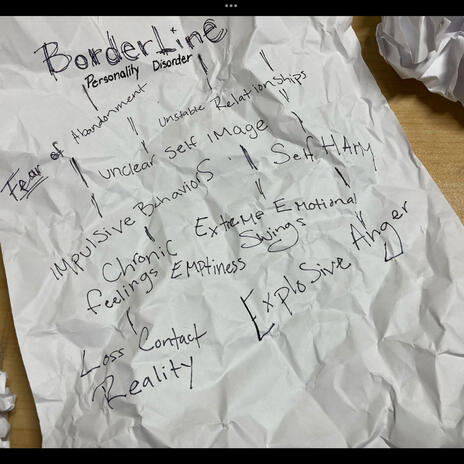 BorderLine
Personality Disorder
Fear of Abandonment
Unstable Relationships
Unclear Self Image
Self Harm
Impulsive Behaviors
Extreme Emotional
Swings
Chronic
feelings Emptiness
Explosive Anger
Loss Contact
Reality